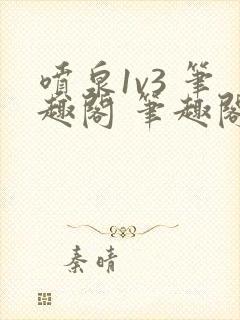 喷泉1v3 筆
趣閣 筆趣閣
秦晴